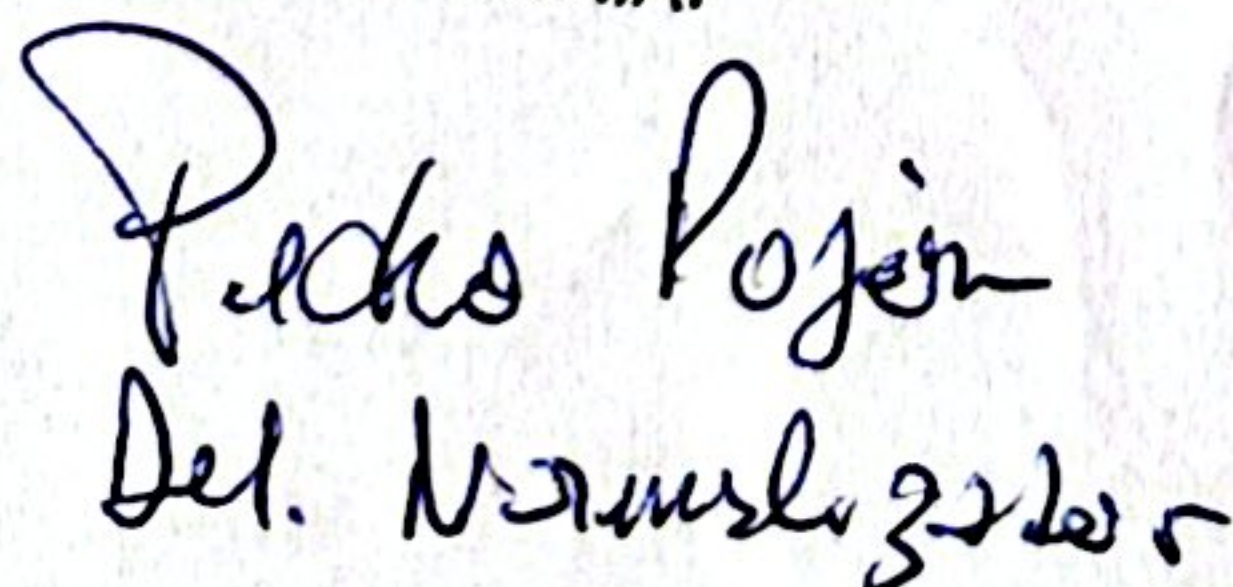 Pedro Poján
Del. Normalizador